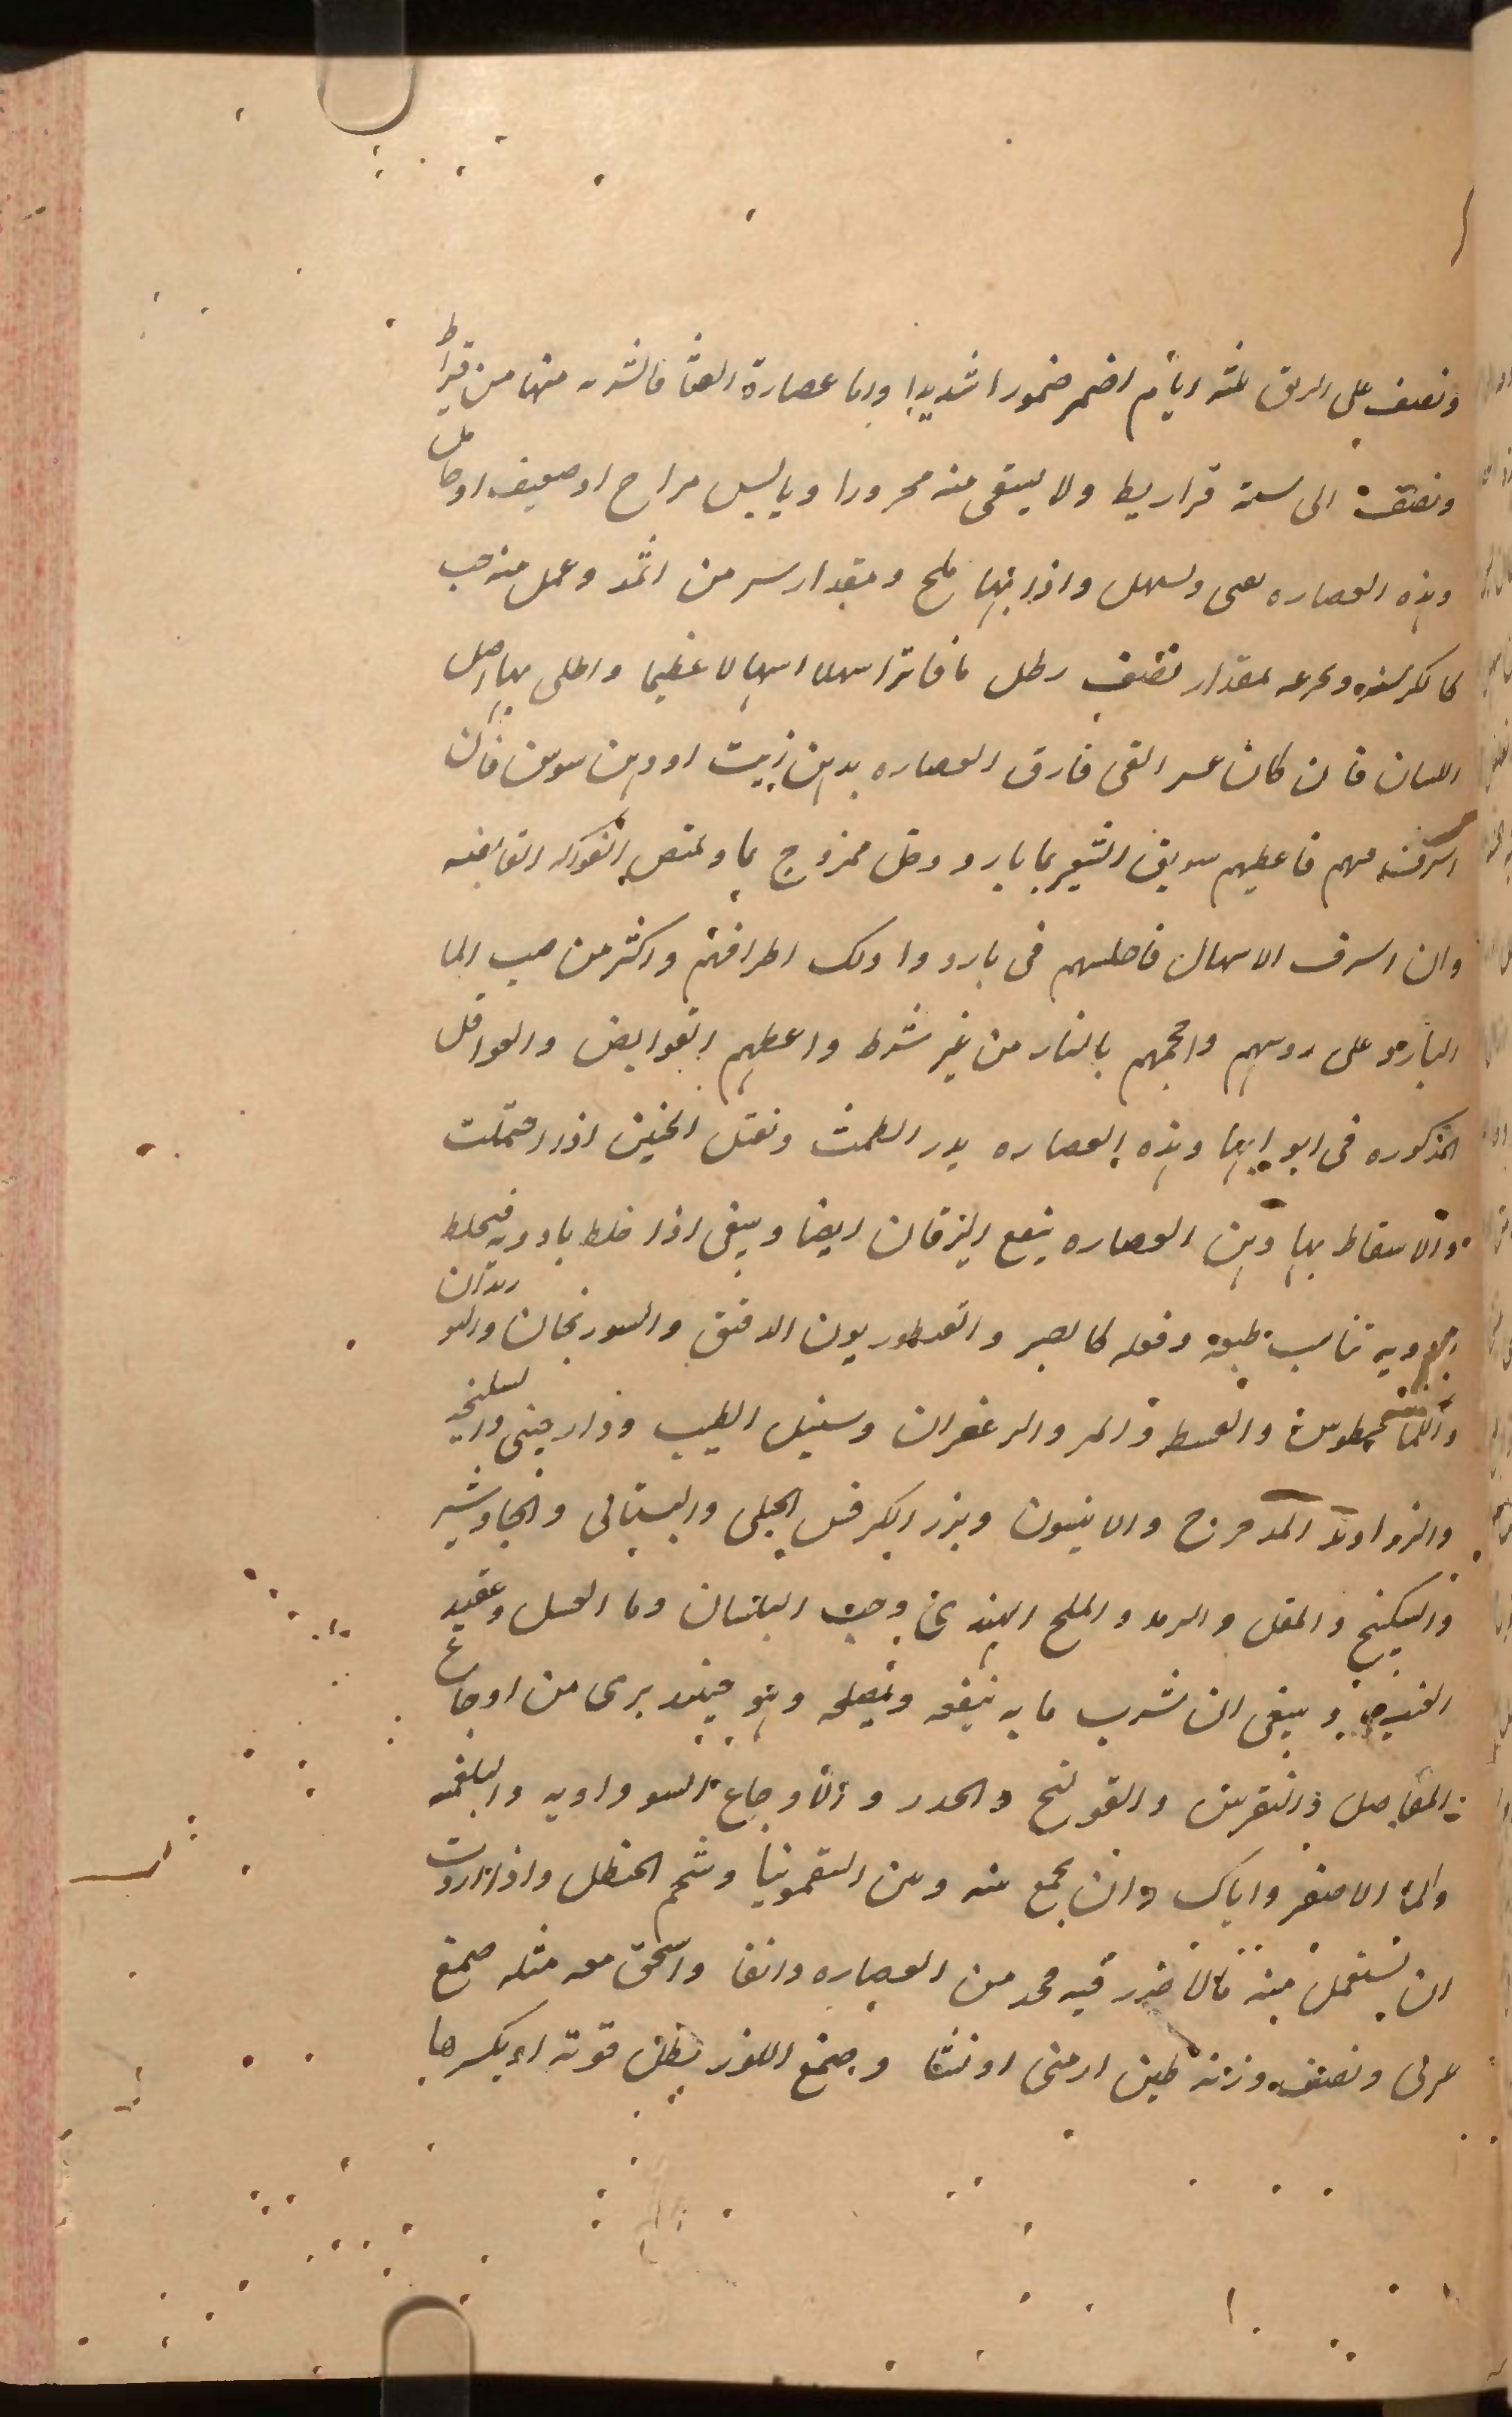 ونصف على الريق ثلثه ايام اضمر ضمورا شديدا واما عصارة القثا فالشربه منها من قيراط
ونصف الى ستة قراريط ولا يسقى منه محرورا ويابس مزاج او ضعيف او حامل
وهذه العصاره تقى وتسهل واذا فيها ملح وبمقدار يسير من اثمد وعمل منه حب
كالكرسنه وبجرعه بمقدار نصف رطل ما فاترا سهلا اسهالا عظيما واطلى بها اصل
اللسان فان كان عسر القى فارق العصاره بدهن زيت او دهن سوسن فان
اسرف منهم فاعطيهم سويق الشعير بما بارد وخل ممزوج بما وبمص الفواكه القابضه
وان اسرف الاسهال فاجلسهم فى بارد وادلك اطرافهم واكثر من صب الما
البارد على روسهم واحجمهم بالنار من غير شرط واعطهم القوابض والعواقل
المذكوره فى ابوابها وهذه العصاره يدر الطمث وتقتل الجنين اذا احتملت
والاسقاط بها وهن العصاره ينفع اليرقان ايضا وينبغى اذا خلط بادويه فيخلط
بادويه تناسب طبعه وفعله كالصبر والقنطوريون الدقيق والسورنجان والبوزيدان
والقسط والمر والزعفران وسنبل الطيب ودارصينى والسليخه
والزراوند المدحرج والانيسون وبزر الكرفس الجبلى والبستانى والجاوشير
والسكبينج والمقل والملح الهندى وحب البلسان وما العسل وعقيد
العنب وينبغى ان شرب ما به ينفعه ويصلحه وهو حينئذ يبرى من اوجاع
المفاصل والنقرس والقولنج والخدر والاوجاع السوداويه والبلغميه
والما الاصفر واياك وان يجمع بينه وبين السقمونيا وشحم الحنظل واذا اردت
ان تستعمل منه فالاضرر فيه فخذ من العصاره دانقا واسحق معه مثله صمغ
عربى ونصف وزنه طين ارمنى او نشا وصمغ اللوز يبطل قوته او يكسرها